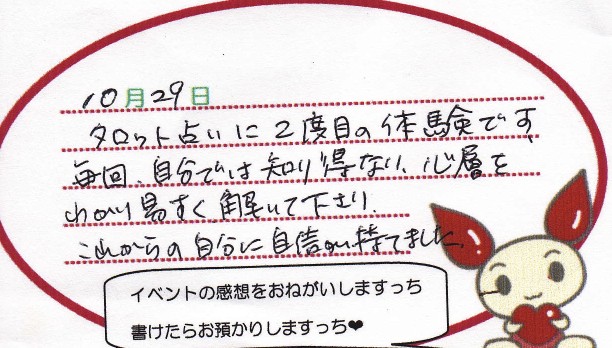 10月29日
タロット占いに2度目の体験です
毎回、自分では知り得ない、心層を
わかり易すく解いて下さり、
これからの自分に自信が持てました。
イベントの感想をおねがいしますっち
書けたらお預かりしますっち❤